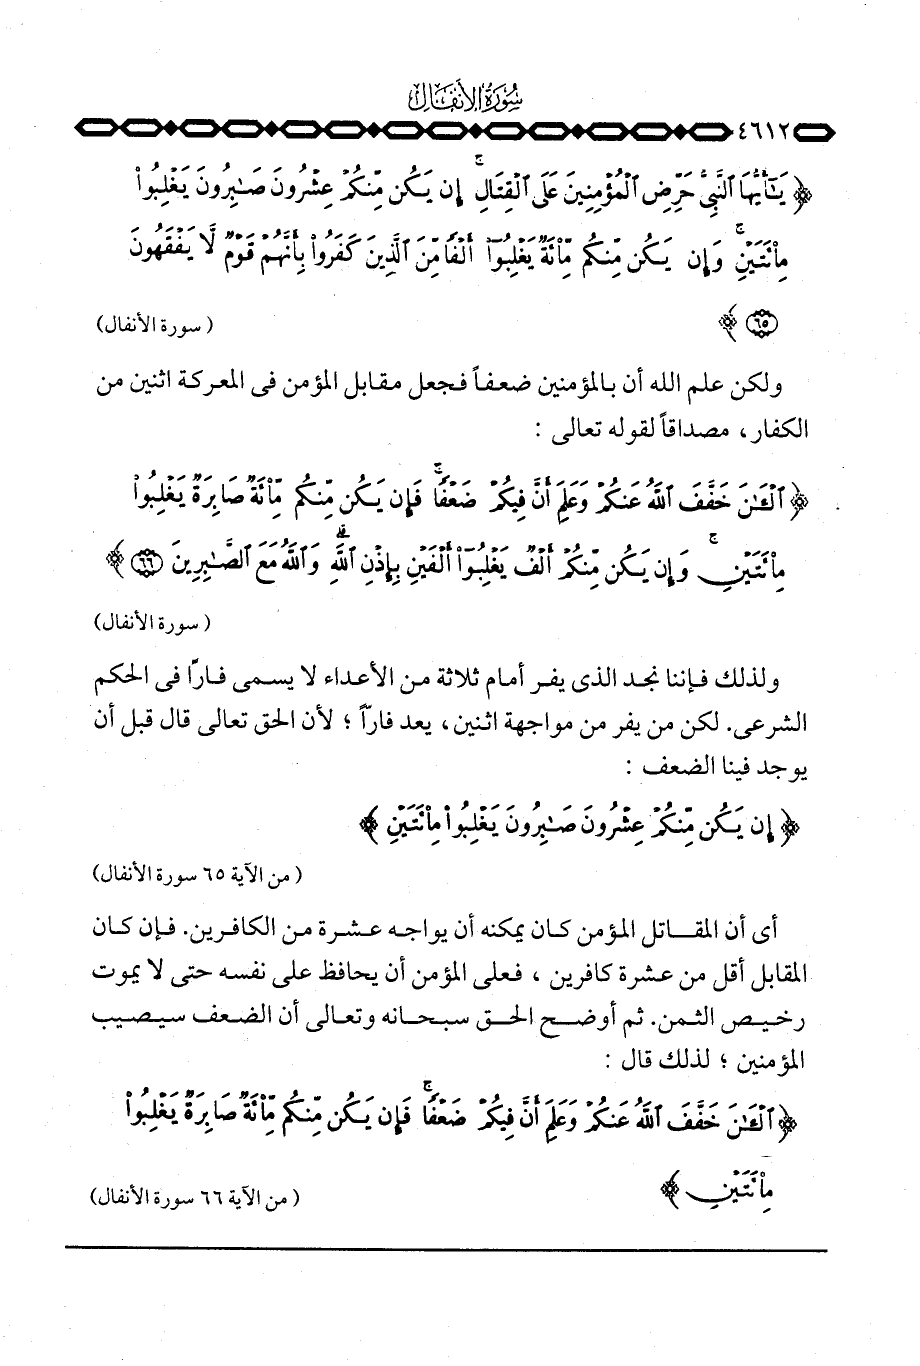 سُورَةُ الأَنفَال
٤٦١٢
﴿ يَٰٓأَيُّهَا ٱلنَّبِىُّ حَرِّضِ ٱلْمُؤْمِنِينَ عَلَى ٱلْقِتَالِ ۚ إِن يَكُن مِّنكُمْ عِشْرُونَ صَٰبِرُونَ يَغْلِبُوا۟
مِا۟ئَتَيْنِ ۚ وَإِن يَكُن مِّنكُم مِّا۟ئَةٌ يَغْلِبُوٓا۟ أَلْفًا مِّنَ ٱلَّذِينَ كَفَرُوا۟ بِأَنَّهُمْ قَوْمٌ لَّا يَفْقَهُونَ
٦٥ ﴾ ( سورة الأنفال)
ولكن علم الله أن بالمؤمنين ضعفاً فجعل مقابل المؤمن فى المعركة اثنين من
الكفار، مصداقاً لقوله تعالى :
﴿ ٱلْـَٰٔنَ خَفَّفَ ٱللَّهُ عَنكُمْ وَعَلِمَ أَنَّ فِيكُمْ ضَعْفًا ۚ فَإِن يَكُن مِّنكُم مِّا۟ئَةٌ صَابِرَةٌ يَغْلِبُوا۟
مِا۟ئَتَيْنِ ۚ وَإِن يَكُن مِّنكُمْ أَلْفٌ يَغْلِبُوٓا۟ أَلْفَيْنِ بِإِذْنِ ٱللَّهِ ۗ وَٱللَّهُ مَعَ ٱلصَّٰبِرِينَ ٦٦ ﴾
( سورة الأنفال)
ولذلك فإننا نجد الذى يفر أمام ثلاثة من الأعداء لا يسمى فارّاً فى الحكم
الشرعى. لكن من يفر من مواجهة اثنين، يعد فارّاً ؛ لأن الحق تعالى قال قبل أن
يوجد فينا الضعف :
﴿ إِن يَكُن مِّنكُمْ عِشْرُونَ صَٰبِرُونَ يَغْلِبُوا۟ مِا۟ئَتَيْنِ ﴾
( من الآية ٦٥ سورة الأنفال)
أى أن المقاتل المؤمن كان يمكنه أن يواجه عشرة من الكافرين. فإن كان
المقابل أقل من عشرة كافرين ، فعلى المؤمن أن يحافظ على نفسه حتى لا يموت
رخيص الثمن. ثم أوضح الحق سبحانه وتعالى أن الضعف سيصيب
المؤمنين ؛ لذلك قال :
﴿ ٱلْـَٰٔنَ خَفَّفَ ٱللَّهُ عَنكُمْ وَعَلِمَ أَنَّ فِيكُمْ ضَعْفًا ۚ فَإِن يَكُن مِّنكُم مِّا۟ئَةٌ صَابِرَةٌ يَغْلِبُوا۟
مِا۟ئَتَيْنِ ﴾ ( من الآية ٦٦ سورة الأنفال)